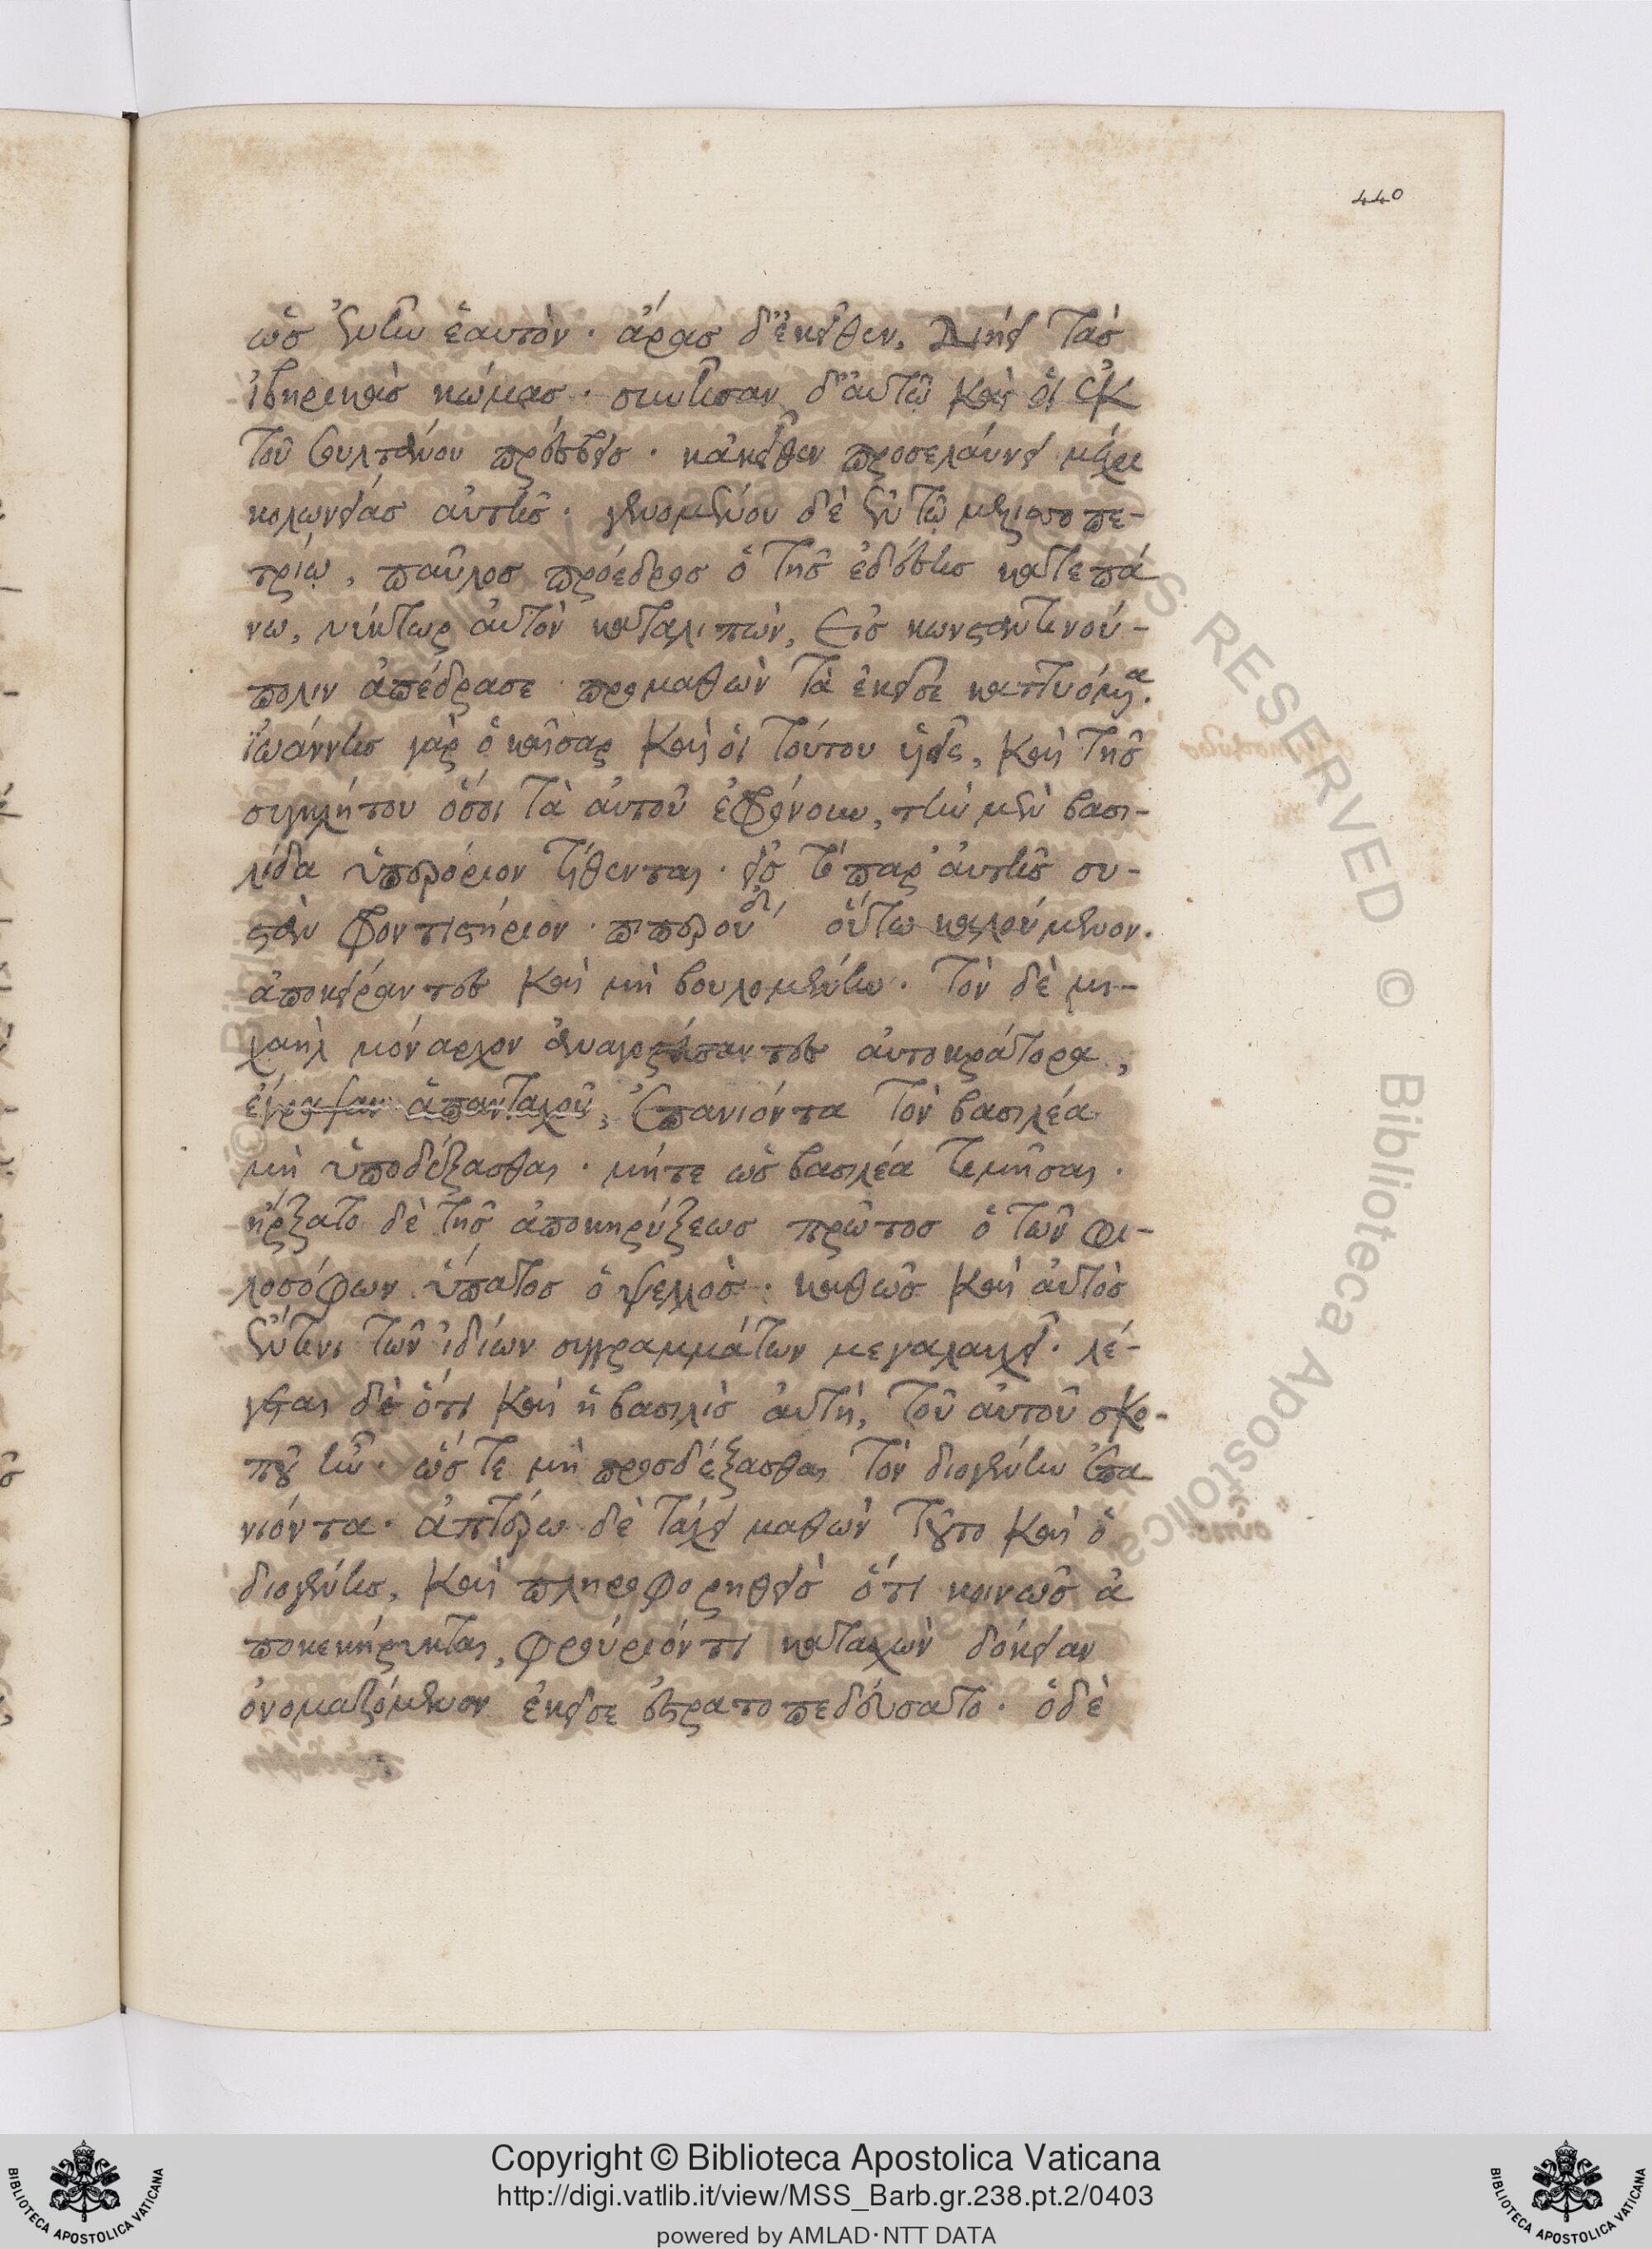 440
ὡς ἦν ἑαυτὸν. ἄρας δ' ἐκεῖθεν, διῄει τὰς
ἰβηρικὰς κώμας. συνῆσαν δ' αὐτῷ καὶ οἱ ἐκ
τοῦ σουλτάνου πρέσβεις. κἀκεῖθεν προσελαύνει μέχρι
κολωνείας αὐτῆς. γενομένου δὲ ἐν τῷ
πετρίῳ, παῦλος πρόεδρος ὁ τῆς ἐδέσσης κατεπά
νω, νύκτωρ αὐτὸν καταλιπὼν, εἰς κωνσταντινού-
πολιν ἀπέδρασε. προμαθὼν τὰ ἐκεῖσε καττυόμενα.
ἰωάννης γὰρ ὁ καῖσαρ καὶ οἱ τούτου υἱεῖς, καὶ τῆς
συγκλήτου ὅσοι τὰ αὐτοῦ ἐφρόνουν, τὴν μὲν βασι-
λίδα ὑπερόριον τίθενται. εἰς τὸ παρ' αὐτῆς συ-
στὰν φροντιστήριον. πιπεροῦδι οὕτω καλούμενον.
ἀποκείραντες καὶ μὴ βουλομένην. τὸν δὲ μι-
χαὴλ μόναρχον ἀναγορεύσαντες αὐτοκράτορα,
ἔγραψαν ἁπανταχοῦ, ἐπανιόντα τὸν βασιλέα
μὴ ὑποδέξασθαι. μήτε ὡς βασιλέα τιμῆσαι.
ἤρξατο δὲ τῆς ἀποκηρύξεως πρῶτος ὁ τῶν φι-
λοσόφων ὕπατος ὁ ψελλὸς. καθὼς καὶ αὐτὸς
ἔν τινι τῶν ἰδίων συγγραμμάτων μεγαλαυχεῖ. λέ-
γεται δὲ ὅτι καὶ ἡ βασιλὶς αὐτὴ, τοῦ αὐτοῦ σκο-
ποῦ ἦν. ὥστε μὴ προσδέξασθαι τὸν διογένην ἐπα
νιόντα. ἀπιστέρω δὲ ταχεῖ μαθὼν τοῦτο καὶ ὁ
διογένης, καὶ πληροφορηθεὶς ὅτι κοινῶς ἀ
ποκεκήρυκται, φρούριόν τι καταλαχὼν δόκειαν
ὀνομαζόμενον ἐκεῖσε ἐστρατοπεδεύσατο. ὁ δὲ
Copyright © Biblioteca Apostolica Vaticana
http://digi.vatlib.it/view/MSS_Barb.gr.238.pt.2/0403
powered by AMLAD·NTT DATA